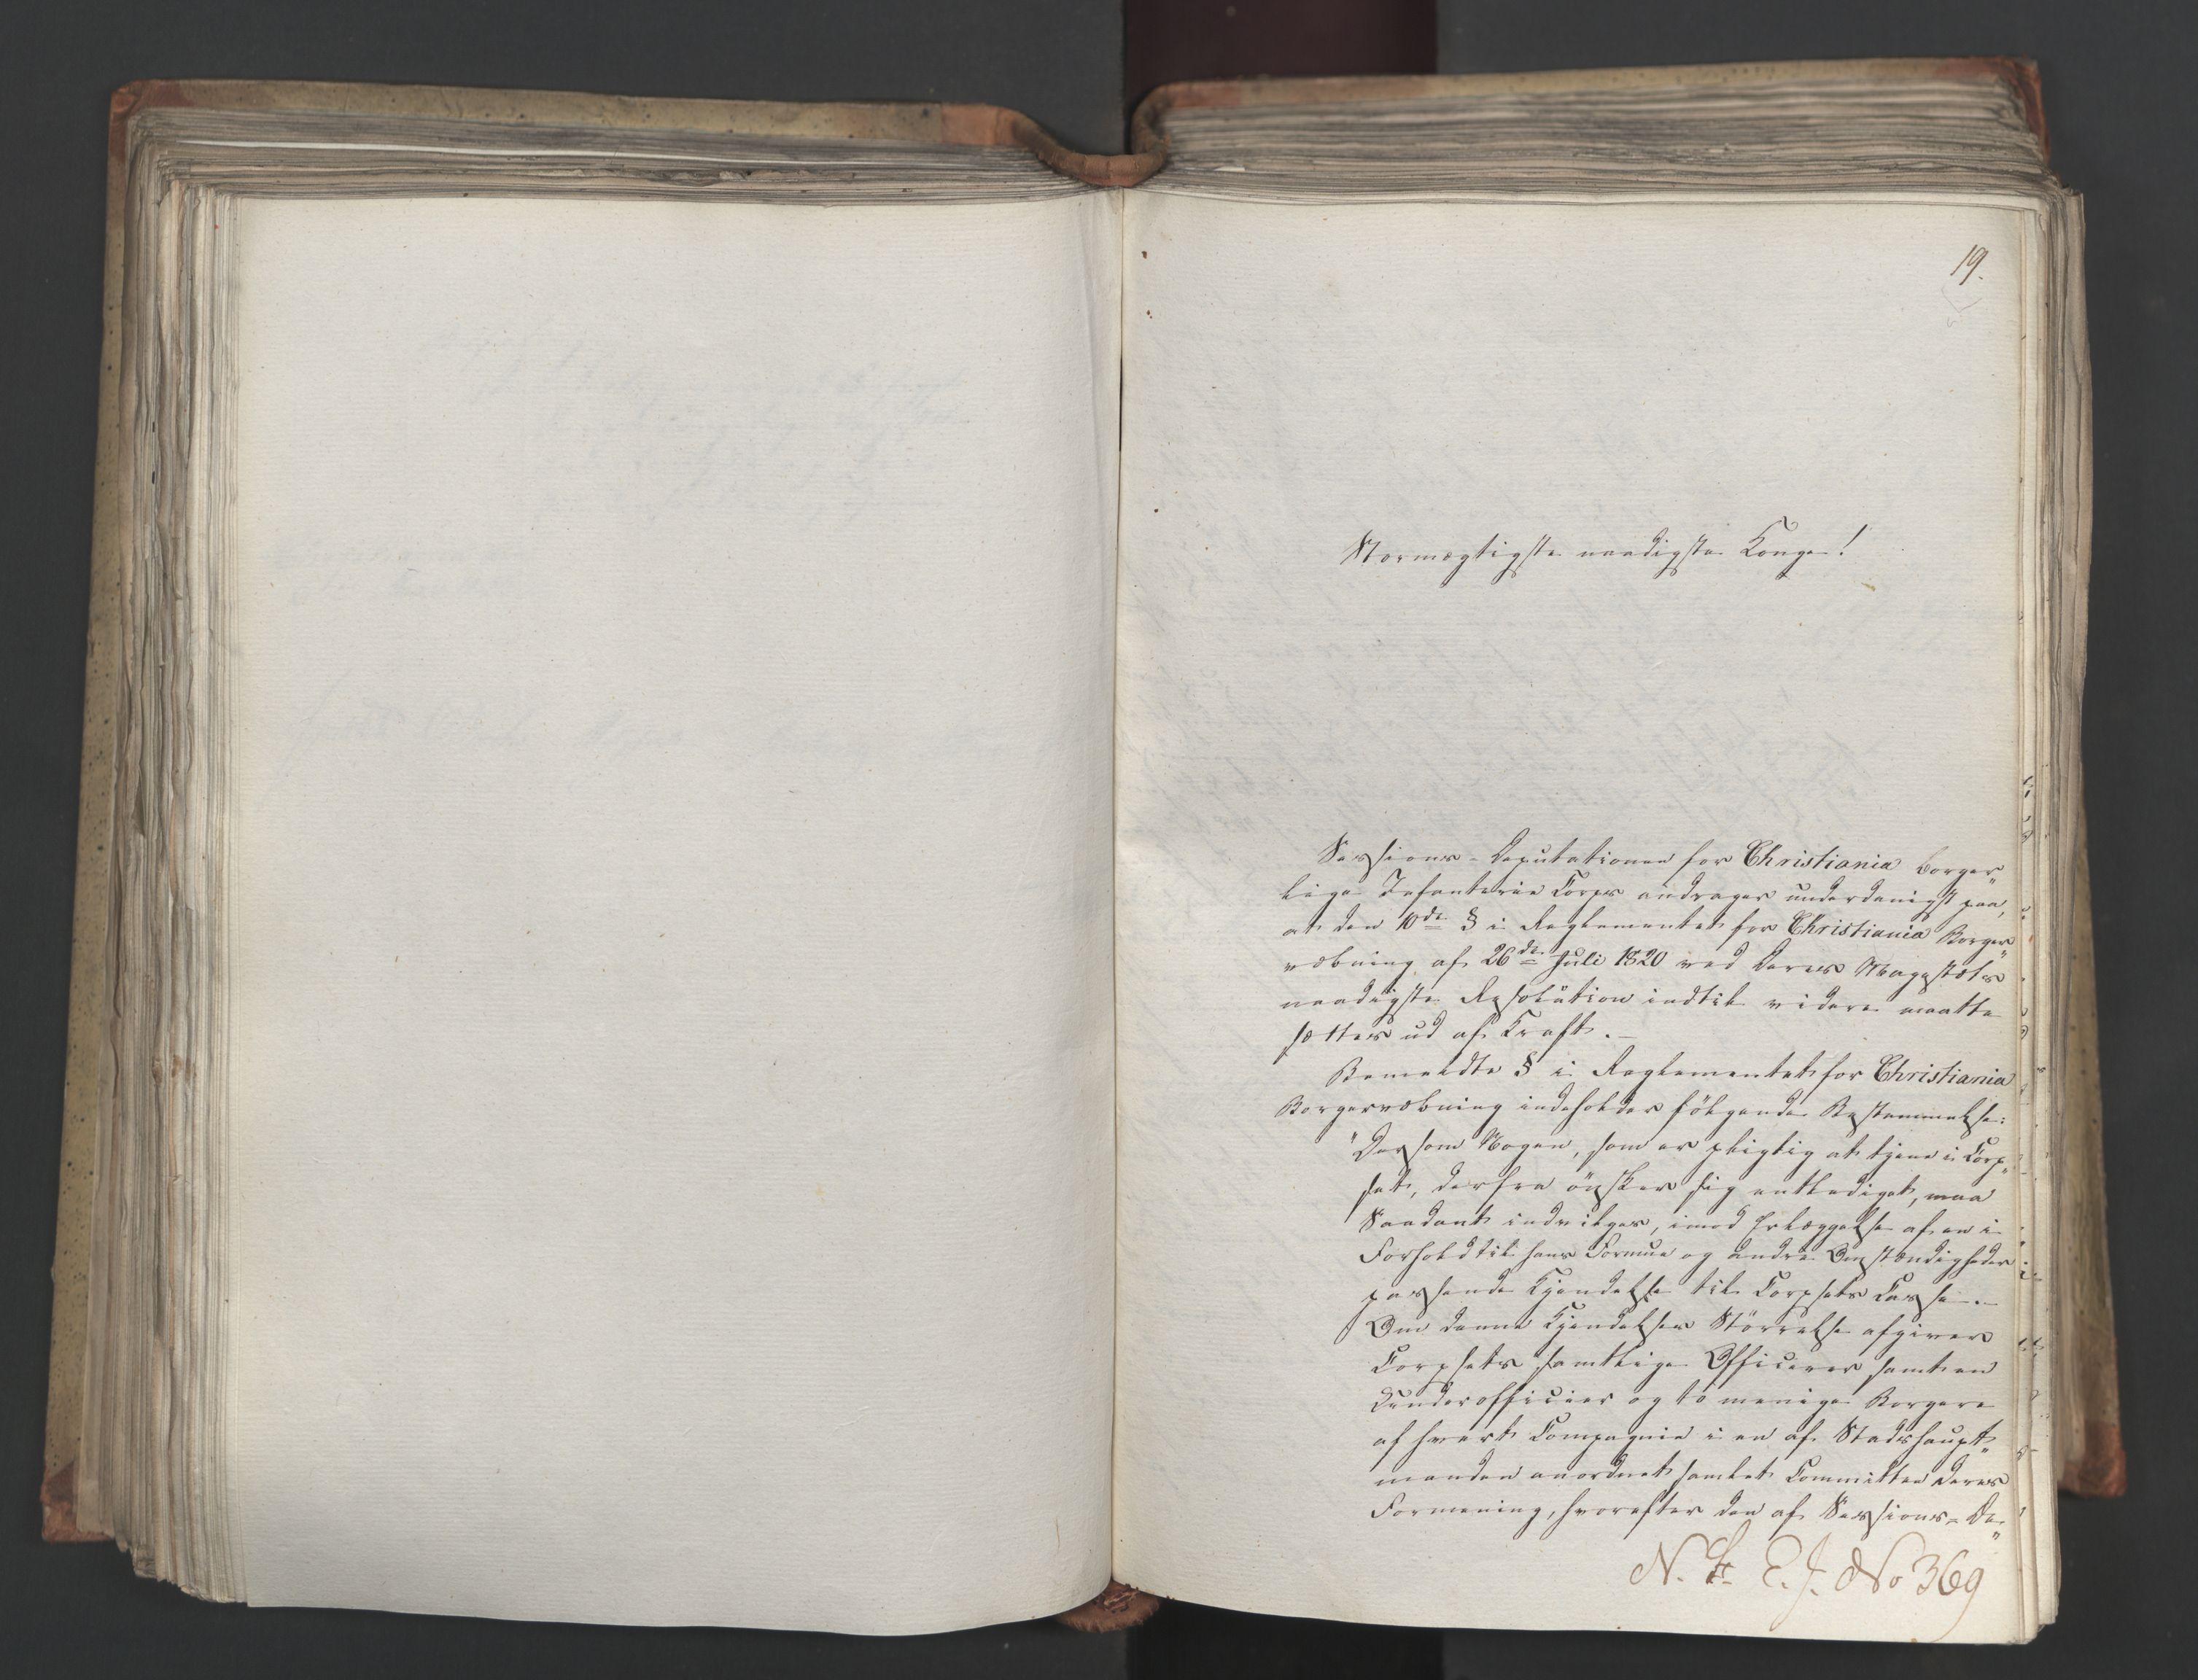 19.
Stormægtigste naadigste Konge!
Sessions-Deputationen for Christiania borger„
lige Infanterie Corps andrager underdanigst paa,
at den 10de § i Reglementet for Christiania Borger„
væbning af 26de Juli 1820 ved Deres Majestæts
naadigste Resolution indtil videre maatte
sættes ud af Kraft.—
Bemeldte § i Reglementet for Christiania
Borgervæbning indeholder følgende Bestemmelse:
"Dersom Nogen, som er pligtig at tjene i Corp„
set, derfra ønsker sig entlediget, maa
Saadant indvilges, imod Erlæggelse af en i
Forhold til hans Formue og andre Omstændigheder
passende Kjendelse til Corpsets Casse.—
Om denne Kjendelses Størrelse afgiver
Corpsets samtlige Officerer samt en
Underofficier og to menige Borgere
af hvert Compagnie i en af Stadshaupt„
manden anordnet samlet Committee deres
Formening, hvorefter den af Sessions-De„
E. J. No 369